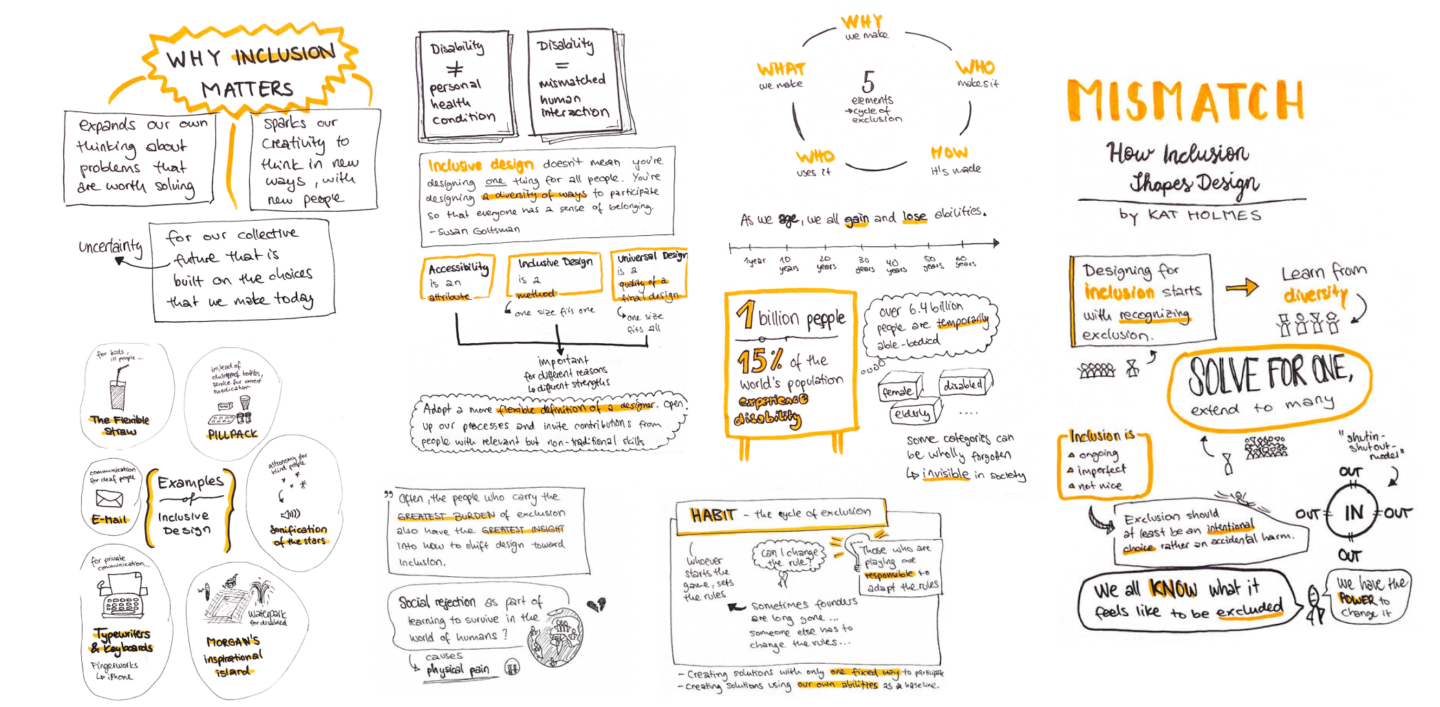 WHY INCLUSION
MATTERS
expands our own
thinking about
problems that
are worth solving
sparks our
creativity to
think in new
ways, with
new people
uncertainty
for our collective
future that is
built on the choices
that we make today
for beds,
ill people...
The Flexible
Straw
instead of
childproof bottles,
service for
medication
PILLPACK
communication
for deaf people
E-Mail
Examples
of
Inclusive
Design
astronomy for
blind people
Sonification
of the stars
for private
communication...
Typewriters
& Keyboards
Fingerworks
↳ iPhone
waterpark
for disabled
MORGAN'S
inspirational
island
Disability
≠
personal
health
condition
Disability
=
mismatched
human
interaction
Inclusive design doesn't mean you're
designing one thing for all people. You're
designing a diversity of ways to participate
so that everyone has a sense of belonging.
- Susan Goltsman
Accessibility
is an
attribute
Inclusive Design
is a
method
↳ one size fits one
Universal Design
is a
quality of a
final design
↳ one size
fits all
important
for different reasons
↳ different strengths
Adopt a more flexible definition of a designer. Open
up our processes and invite contributions from
people with relevant but non-traditional skills
” Often, the people who carry the
GREATEST BURDEN of exclusion
also have the GREATEST INSIGHT
into how to shift design toward
inclusion.
Social rejection as part of
learning to survive in the
world of humans?
↳ causes
physical pain
WHY
we make
WHAT
we make
WHO
makes it
5
elements
→ cycle of
exclusion
WHO
uses it
HOW
it's made
As we age, we all gain and lose abilities.
1 year
10
years
20
years
30
years
40
years
50
years
60
years
1 billion people
15% of the
world's population
experience
disability
over 6.4 billion
people are temporarily
able-bodied
female
disabled
elderly
....
some categories can
be wholly forgotten
↳ invisible in society
HABIT - the cycle of exclusion
whoever
starts the
game, sets
the rules
Can I change
the rule?
Those who are
playing are
responsible to
adapt the rules
sometimes founders
are long gone ...
someone else has to
change the rules...
- Creating solutions with only one fixed way to participate
- Creating solutions using our own abilities as a baseline.
MISMATCH
How Inclusion
Shapes Design
by KAT HOLMES
Designing for
inclusion starts
with recognizing
exclusion.
Learn from
diversity
SOLVE FOR ONE,
extend to many
Inclusion is
ongoing
imperfect
not nice
"shutin-
shutout-
model"
OUT
OUT
IN
OUT
OUT
Exclusion should
at least be an intentional
choice rather an accidental harm.
We all KNOW what it
feels like to be excluded
We have the
POWER to
change it